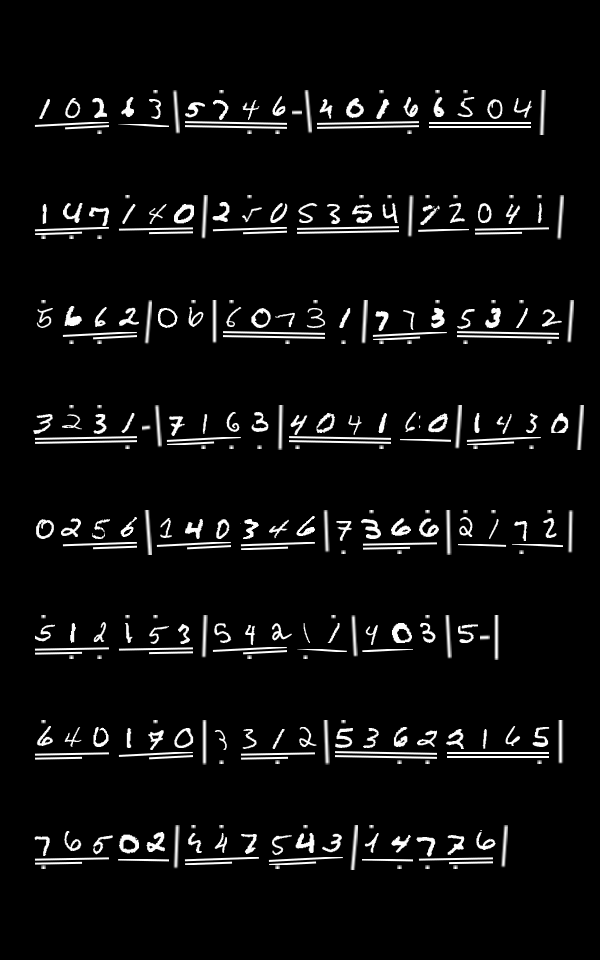 1 0 2 6 3 | 5 7 4 6 - | 4 0 1 6 6 5 0 4 |
1 4 7 1 4 0 | 2 5 0 5 3 5 4 | 7 2 0 4 1 |
5 6 6 2 | 0 6 | 6 0 7 3 1 | 7 7 3 5 3 1 2 |
3 2 3 1 - | 7 1 6 3 | 4 0 4 1 6 0 | 1 4 3 0
0 2 5 6 | 1 4 0 3 4 6 | 7 3 6 6 | 2 1 7 2 |
5 1 2 1 5 3 | 5 4 2 1 1 | 4 0 3 | 5 - |
6 4 0 1 7 0 | 3 3 1 2 | 5 3 6 2 2 1 6 5 |
7 6 5 0 2 | 4 4 7 5 4 3 | 1 4 7 7 6 |